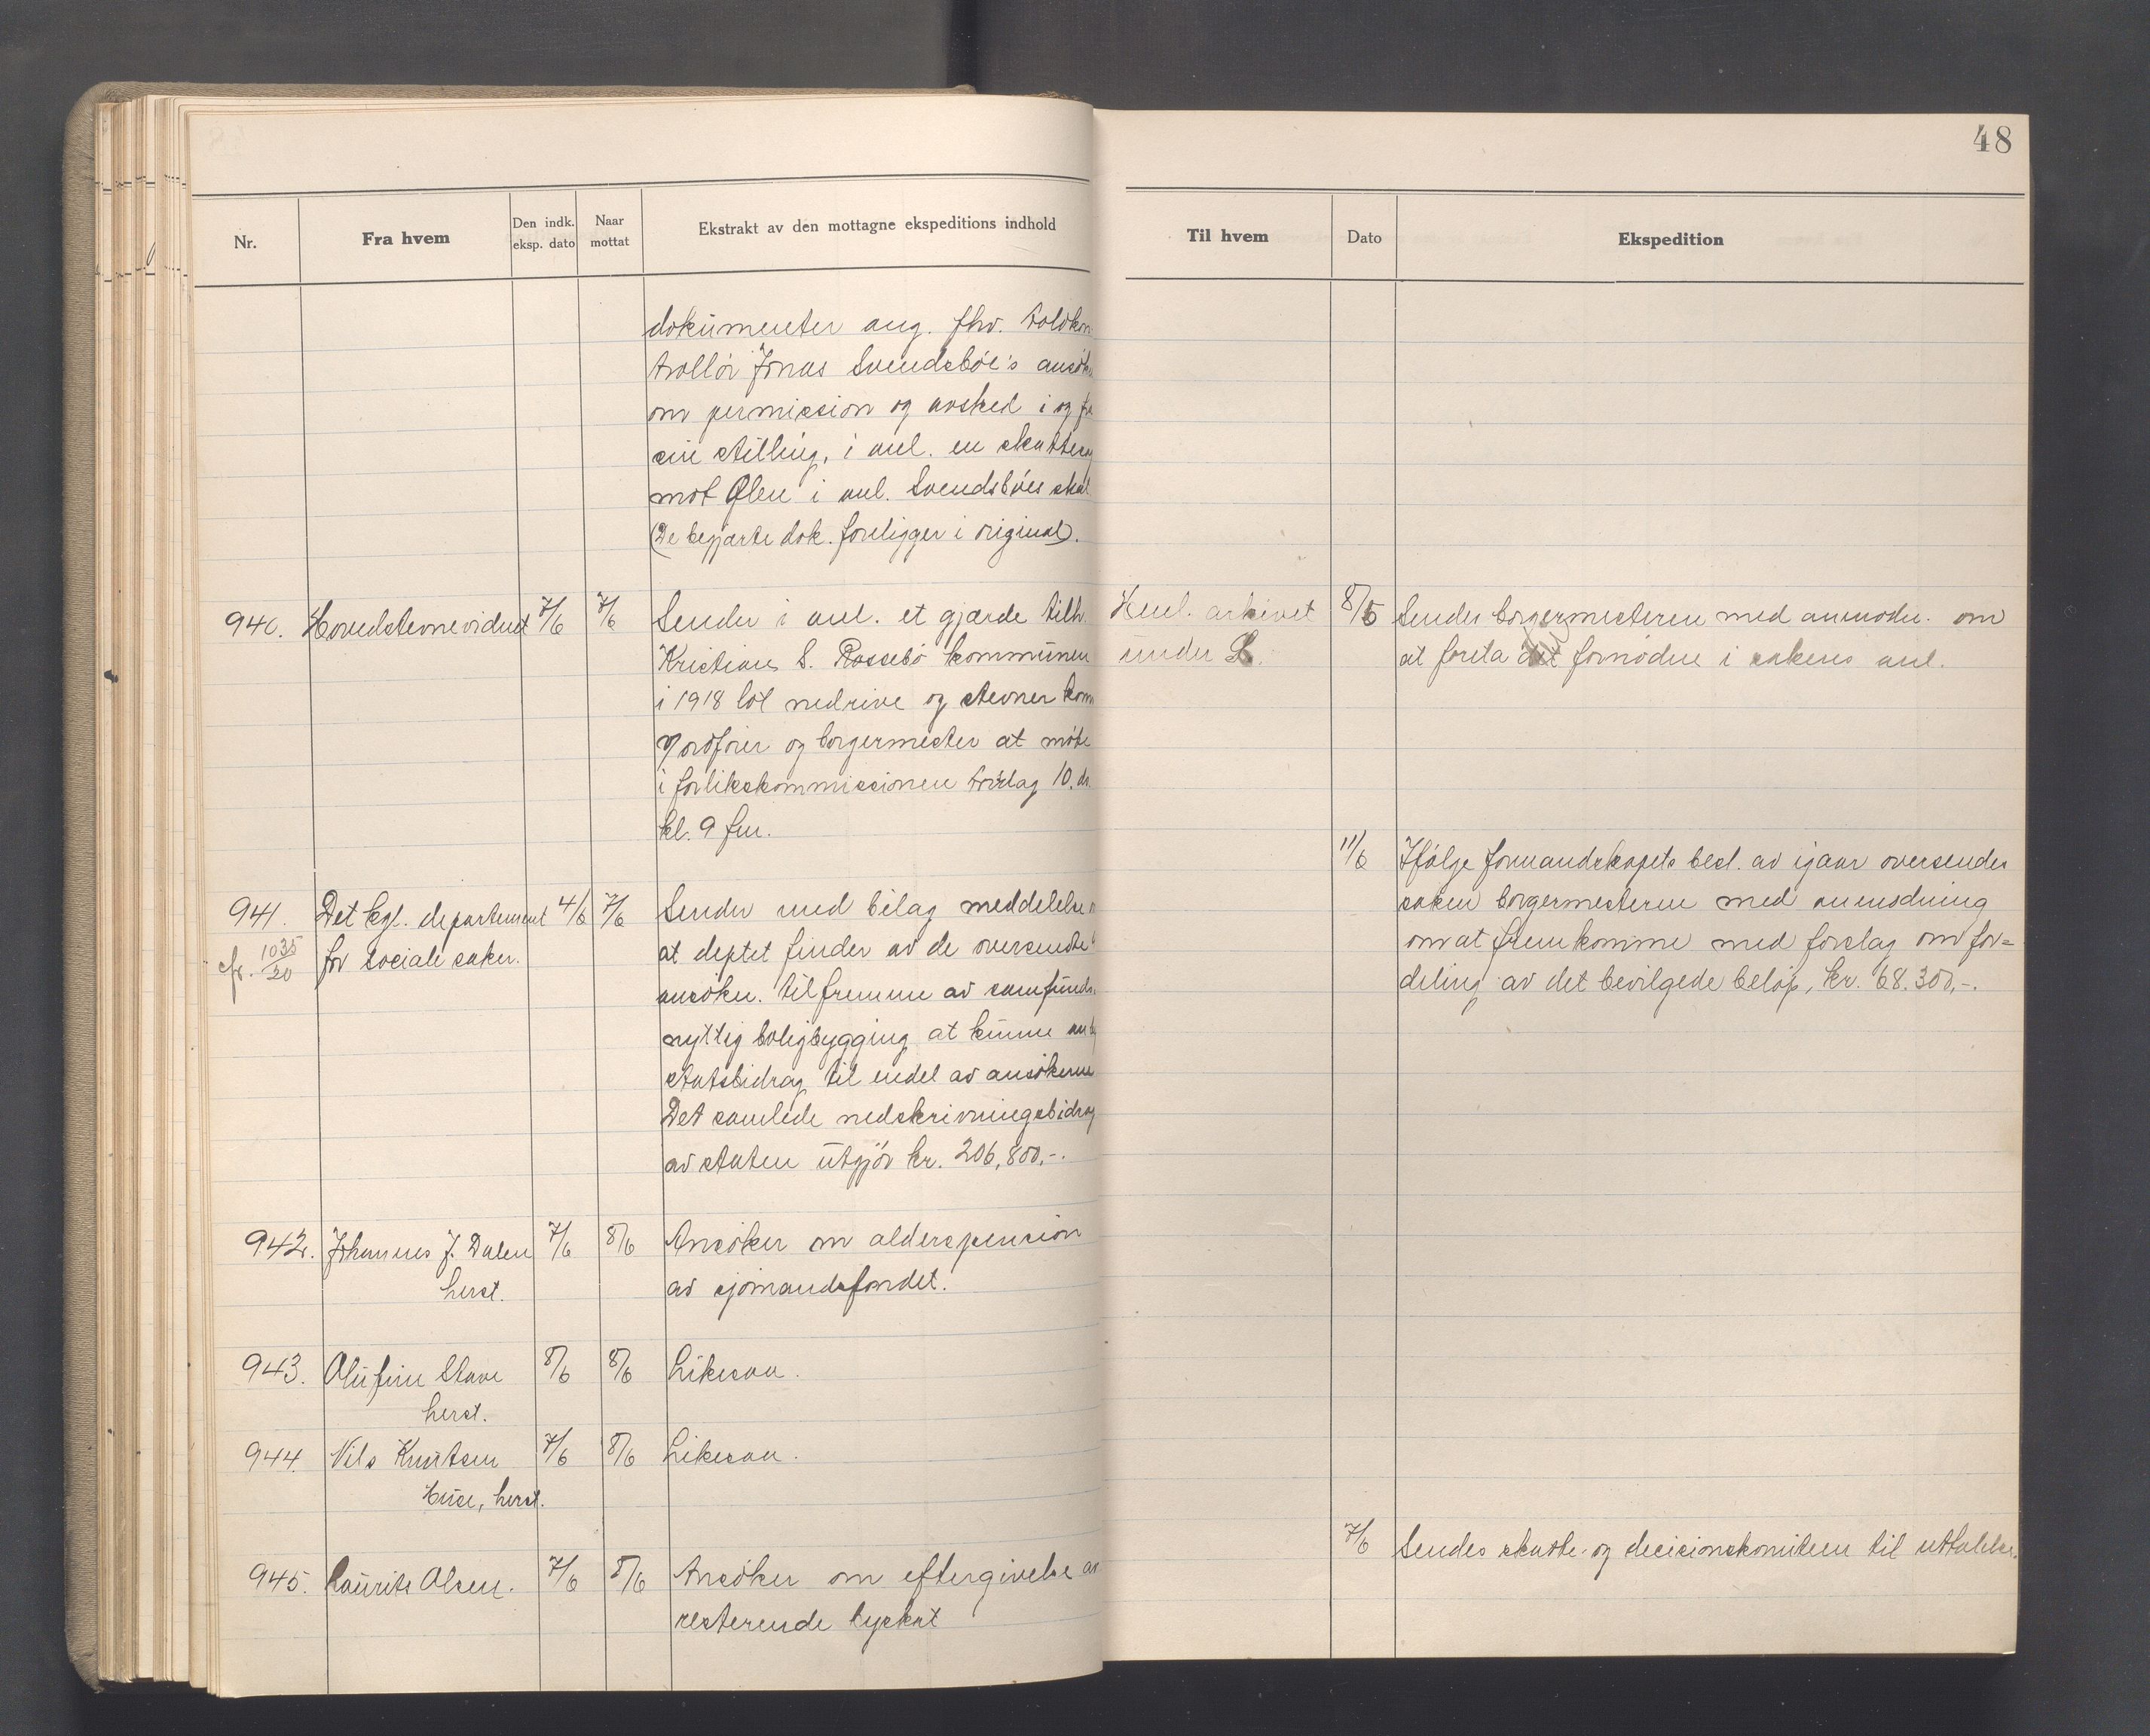 48
Nr.
Fra hvem
Den indk. eksp. dato
Naar mottat
Ekstrakt av den mottagne ekspeditions indhold
Til hvem
Dato
Ekspedition
dokumenter ang. fhv. toldkon-
trollør Jonas Svendsbøe's ansøk
om permission og avsked i og fr
sin stilling, i anl. en skattesag
mot Ølen i anl. Svendsbøes skat
(De begjærte dok. foreligger i original).
940. Hovedstevnevidnet 7/6 7/6 Sender i anl. et gjærde tilh.
Kristian S. Rossebø kommunen
i 1918 lot nedrive og stevner kom
ordfører og borgermester at møte
i forlikskommissionen torsdag 10. ds.
kl. 9 fm.
Henl. arkivet 8/6 Sendes borgermesteren med anmodn. om
under S. at foreta det fornødne i sakens anl.
941. Det kgl. departement 4/6 7/6 Sender med bilag meddelelse
cfr. 1035/20 for sociale saker. at deptet finder av de oversendte
ansøkn. til fremme av samfunds-
nyttig boligbygging at kunne
statsbidrag til endel av ansøkerne
Det samlede nedskrivningsbidrag
av staten utgjør kr. 206,800,-.
11/6 Ifølge formandskapets besl. av igaar oversendes
saken borgermesteren med anmodning
om at fremkomme med forslag om for=
deling av det bevilgede beløp, kr. 68.300,-.
942. Johannes J. Dalen 7/6 8/6 Ansøker om alderspension
herst. av sjømandsfondet.
943. Olufine Stave 8/6 8/6 Likesaa.
herst.
944. Nils Knutsen 7/6 8/6 Likesaa.
Huse, herst.
945. Laurits Olsen. 7/6 8/6 Ansøker om eftergivelse av
resterende byskat
7/6 Sendes skatte- og decisionskomiteen til uttalelse.